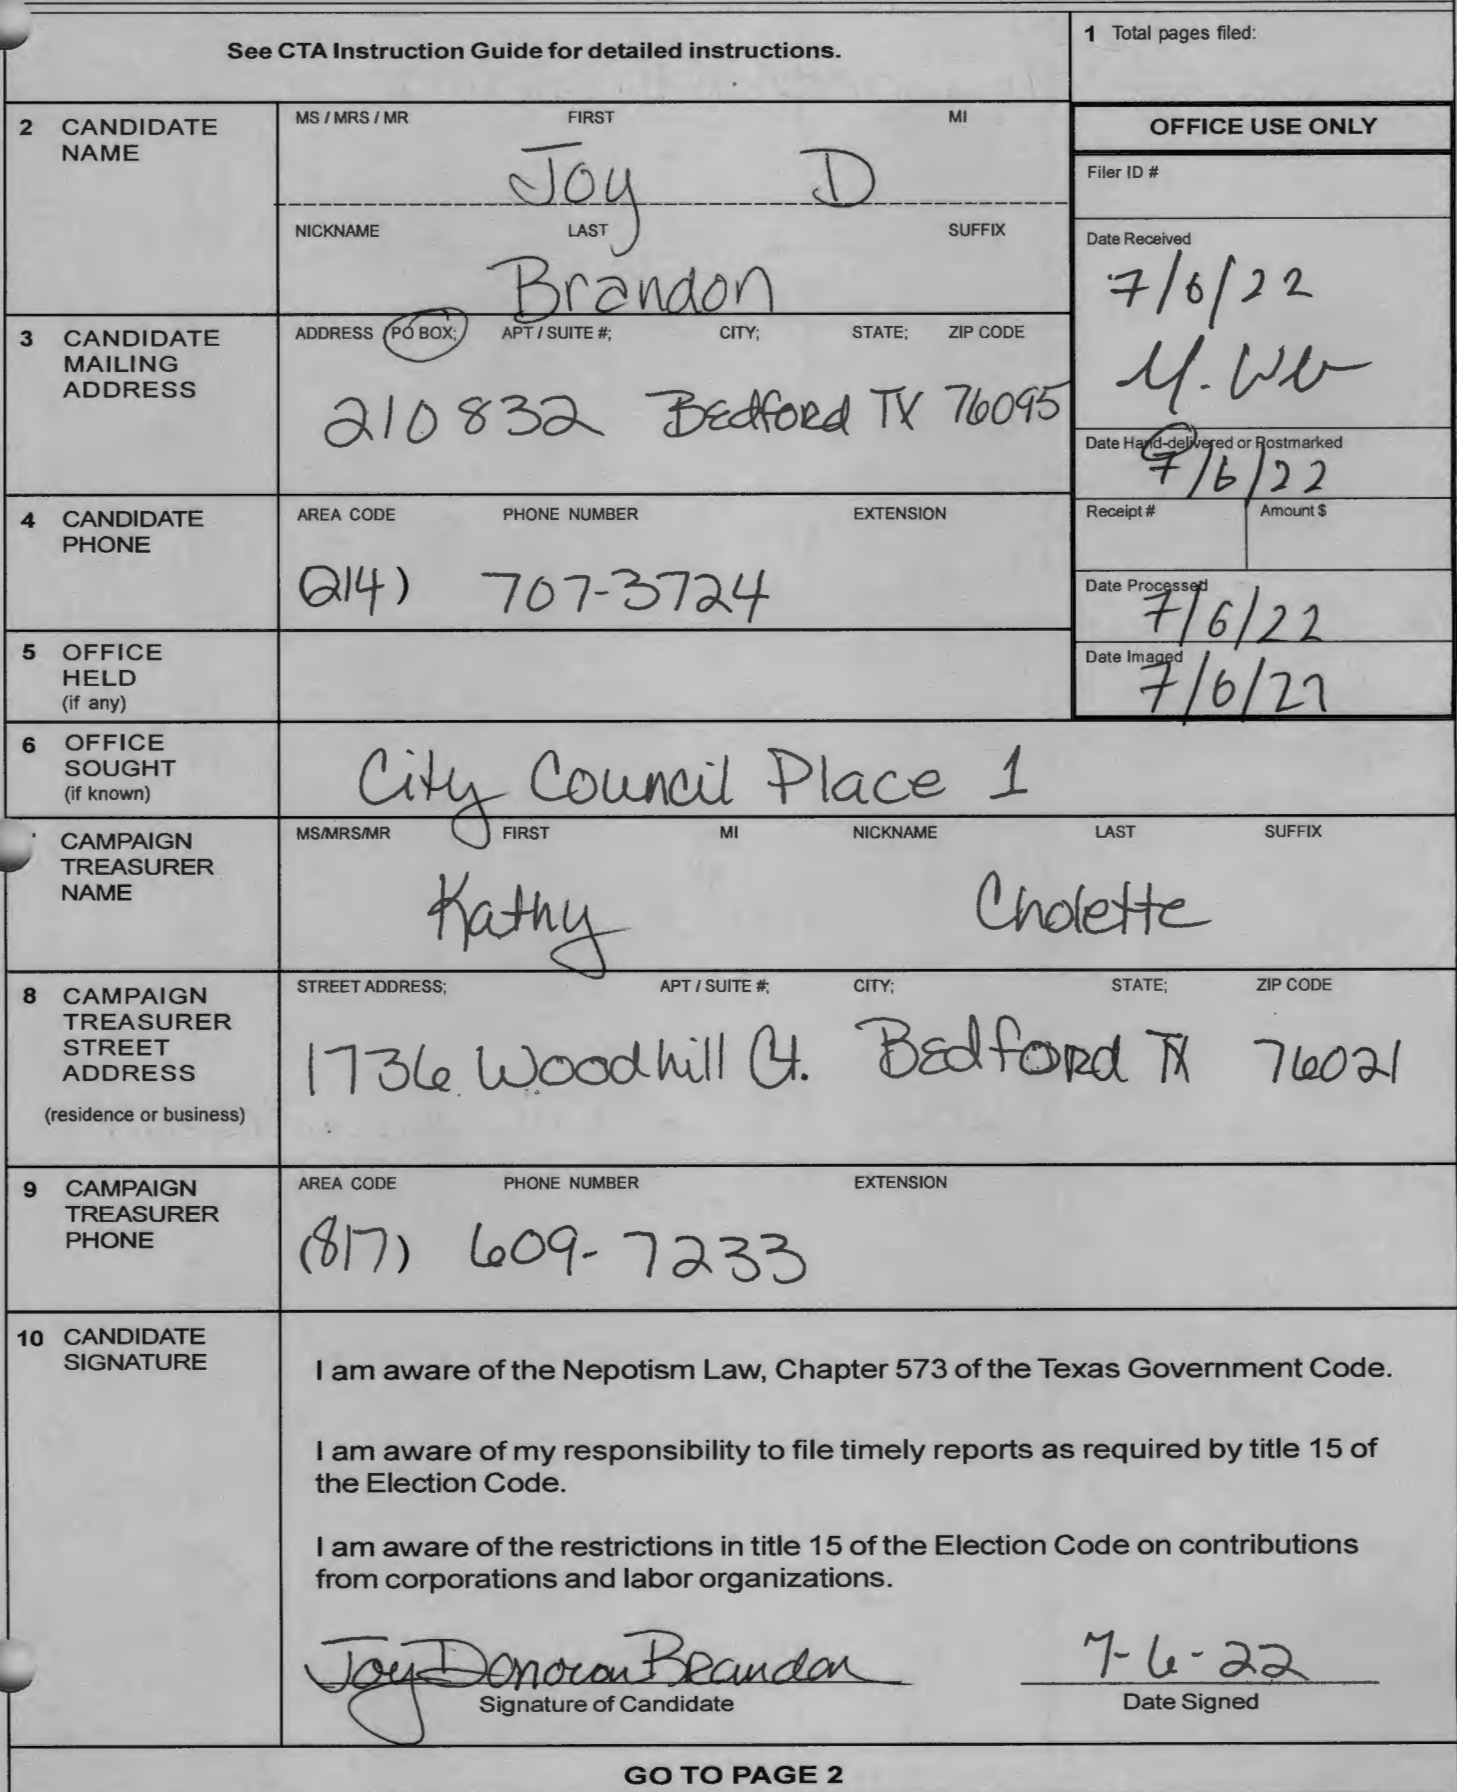 See CTA Instruction Guide for detailed instructions.
1 Total pages filed:
2 CANDIDATE NAME
MS / MRS / MR FIRST MI
Joy D
NICKNAME LAST SUFFIX
Brandon
OFFICE USE ONLY
Filer ID #
Date Received
7/6/22
Date Hand-delivered or Postmarked
7/6/22
Receipt # Amount $
Date Processed
7/6/22
Date Imaged
7/6/22
3 CANDIDATE MAILING ADDRESS
ADDRESS / PO BOX; APT / SUITE #; CITY; STATE; ZIP CODE
210832 Bedford TX 76095
4 CANDIDATE PHONE
AREA CODE PHONE NUMBER EXTENSION
(214) 707-3724
5 OFFICE HELD
(if any)
6 OFFICE SOUGHT
(if known)
City Council Place 1
CAMPAIGN TREASURER NAME
MS/MRS/MR FIRST MI NICKNAME LAST SUFFIX
Kathy Cholette
8 CAMPAIGN TREASURER STREET ADDRESS
(residence or business)
STREET ADDRESS; APT / SUITE #; CITY; STATE; ZIP CODE
1736 Woodhill Ct. Bedford TX 76021
9 CAMPAIGN TREASURER PHONE
AREA CODE PHONE NUMBER EXTENSION
(817) 609-7233
10 CANDIDATE SIGNATURE
I am aware of the Nepotism Law, Chapter 573 of the Texas Government Code.
I am aware of my responsibility to file timely reports as required by title 15 of
the Election Code.
I am aware of the restrictions in title 15 of the Election Code on contributions
from corporations and labor organizations.
Joy Donovan Brandon 7-6-22
Signature of Candidate Date Signed
GO TO PAGE 2